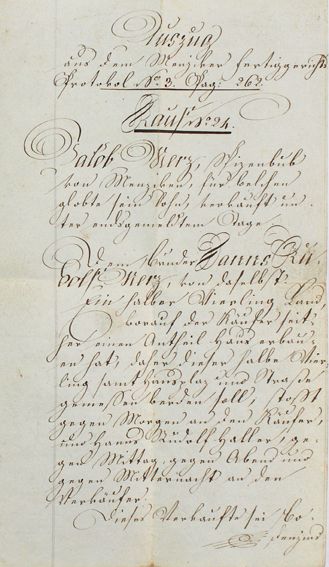 Auszug
aus dem Menziker Fertiggerichts
Protokol No. 3. Pag: 262.
Kauf No. 24.
Jakob Merz, Spizenbub
von Menziken, für welchen
globte sein Sohn, verkauft un-
ter endsgemeldtem Tage
Dem Bruder Hanns Ru-
dolf Merz, von daselbst.
Ein halber Vierling Land,
worauf der Käufer seit-
her einen Antheil Haus erbau-
en hat, daher dieser halbe Vier-
ling samt Hausplaz und Straße
gemessen werden soll, stoßt
gegen Morgen an den Käufer,
und Hanns Rudolf Haller, ge-
gen Mittag, gegen Abend und
gegen Mitternacht an den
Verkäufer.
Dieses Verkaufte sei Bo-
denzins